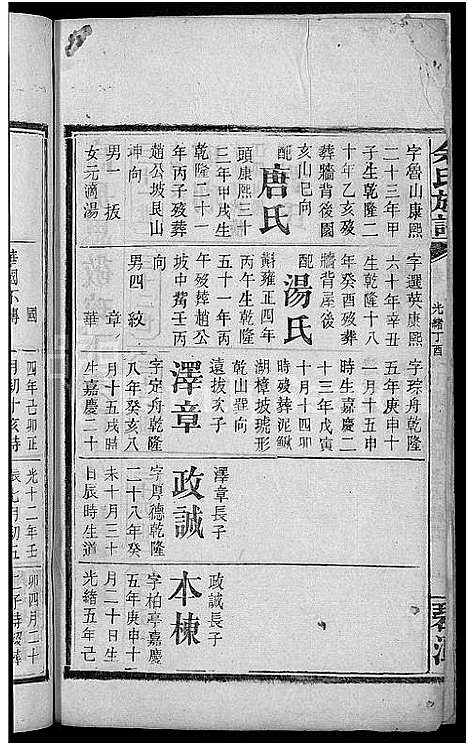 余氏族譜
光緒丁酉
字魯山康熙
二十三年甲
子生乾隆二
十年乙亥歿
葬牆背後園
亥山巳向
配唐氏
頭康熙三十
三年甲戌生
乾隆二十一
年丙子歿葬
趙公坡艮山
坤向
男一 拔
女元適湯
字選英康熙
六十年辛丑
生乾隆十八
年癸酉歿葬
牆背屋後
配湯氏
斛雍正四年
丙午生乾隆
五十一年丙
午歿葬趙公
坡中嘴壬丙
向
男四 紋
章
華
字琮舟乾隆
五年庚申十
一月十五申
時生嘉慶二
十三年戊寅
十月十四卯
時歿葬泥鰍
湖樟坡琥形
乾山巽向
遠拔次子
澤章
字定舟乾隆
八年癸亥
月十五戌時
生嘉慶二十
澤章長子
政誠
字厚德乾隆
二十八年癸
未十月三十
日辰時生道
政誠長子
本棟
字柏亭嘉慶
五年庚申十
月二十日生
光緒五年己
國
四年己卯正
月初十亥時
光十二年壬
辰七月初五
卯四月二十